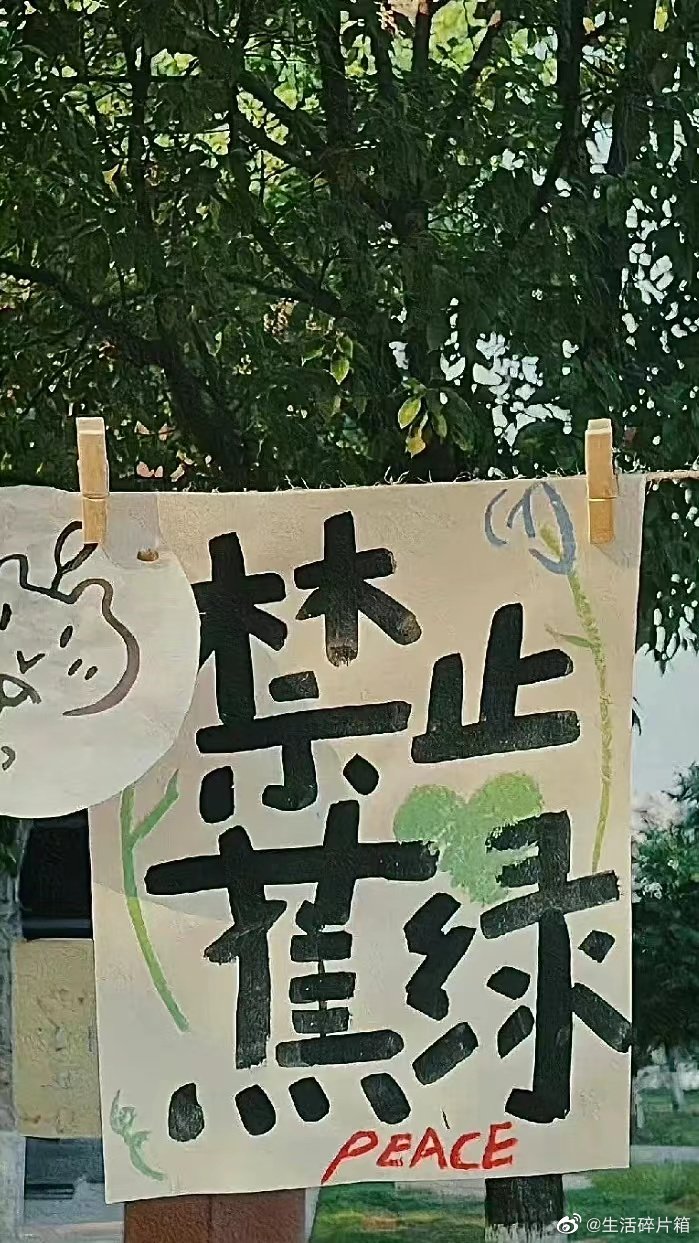 禁止
蕉绿
PEACE
@生活碎片箱